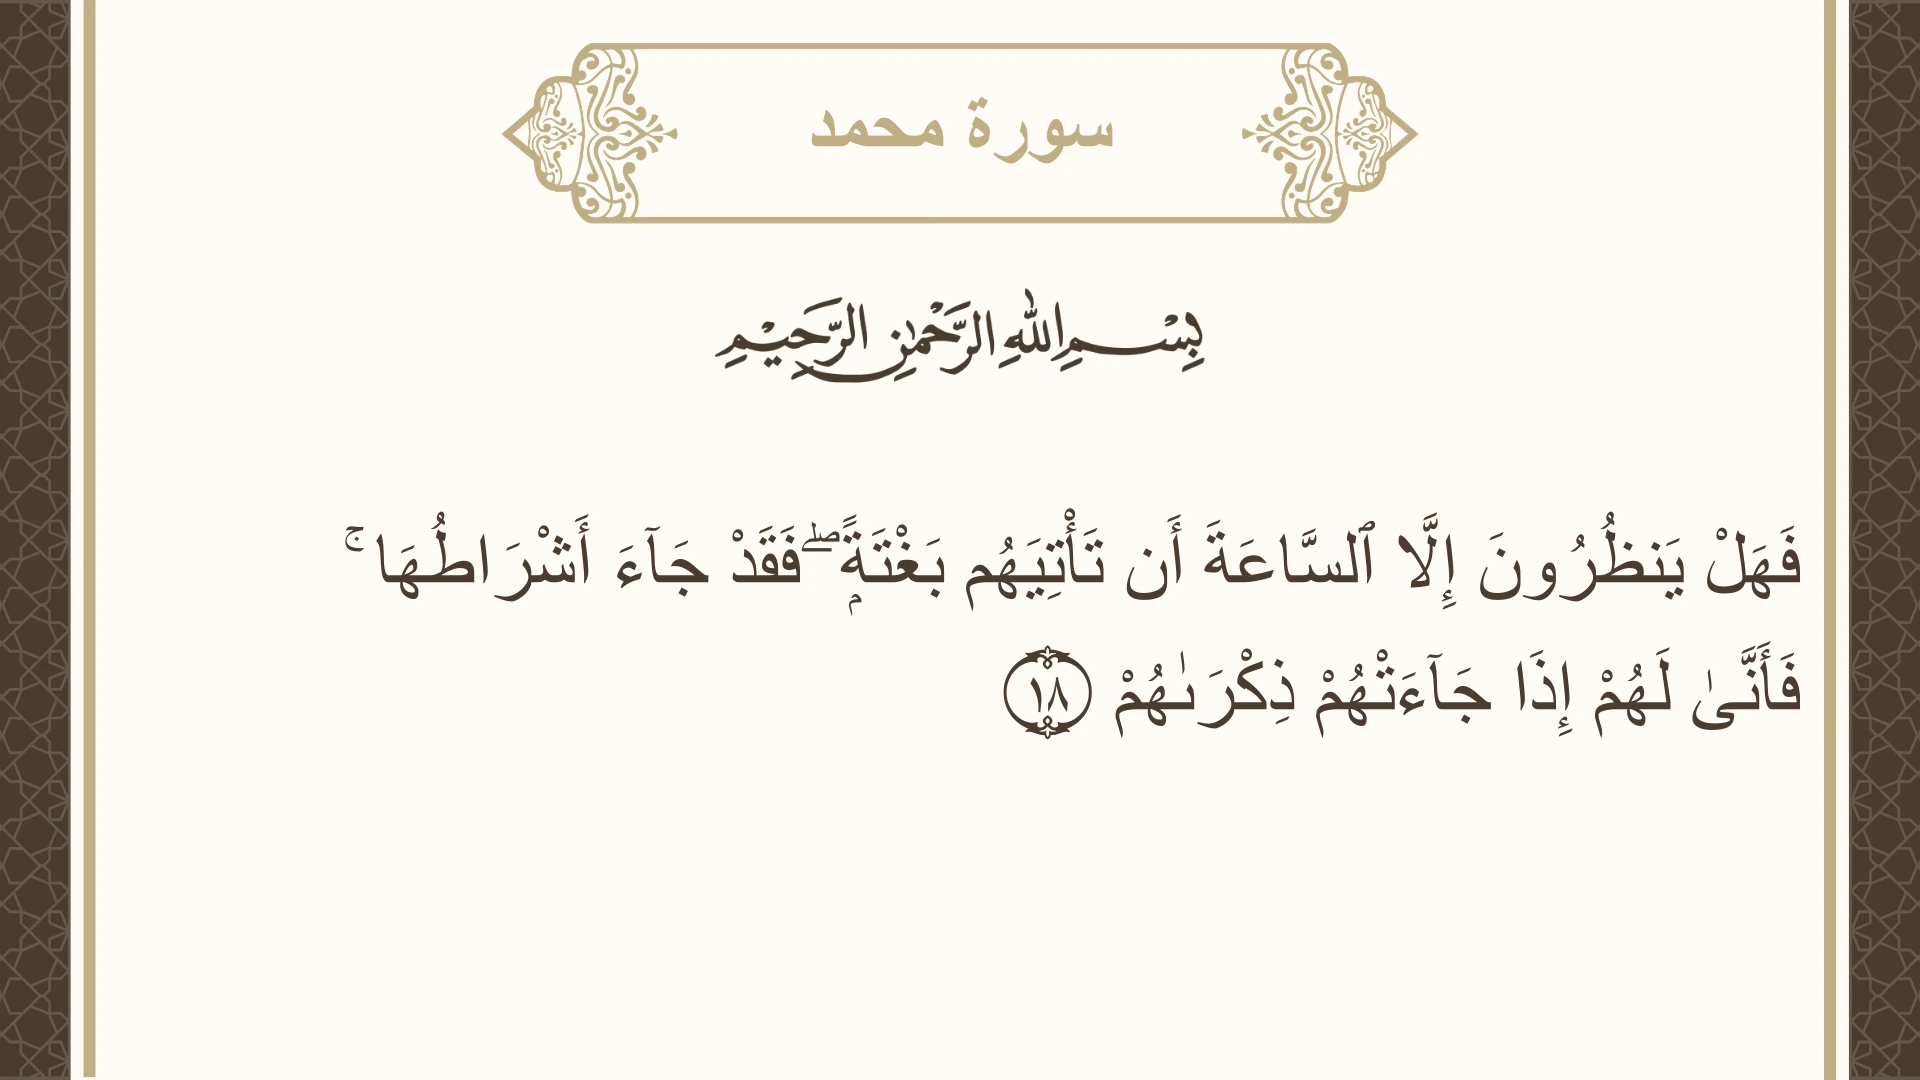 سورة محمد
بِسْمِ اللهِ الرَّحْمٰنِ الرَّحِيْمِ
فَهَلْ يَنظُرُونَ إِلَّا ٱلسَّاعَةَ أَن تَأْتِيَهُم بَغْتَةًۭ ۖ فَقَدْ جَآءَ أَشْرَاطُهَا ۚ
فَأَنَّىٰ لَهُمْ إِذَا جَآءَتْهُمْ ذِكْرَىٰهُمْ ١٨